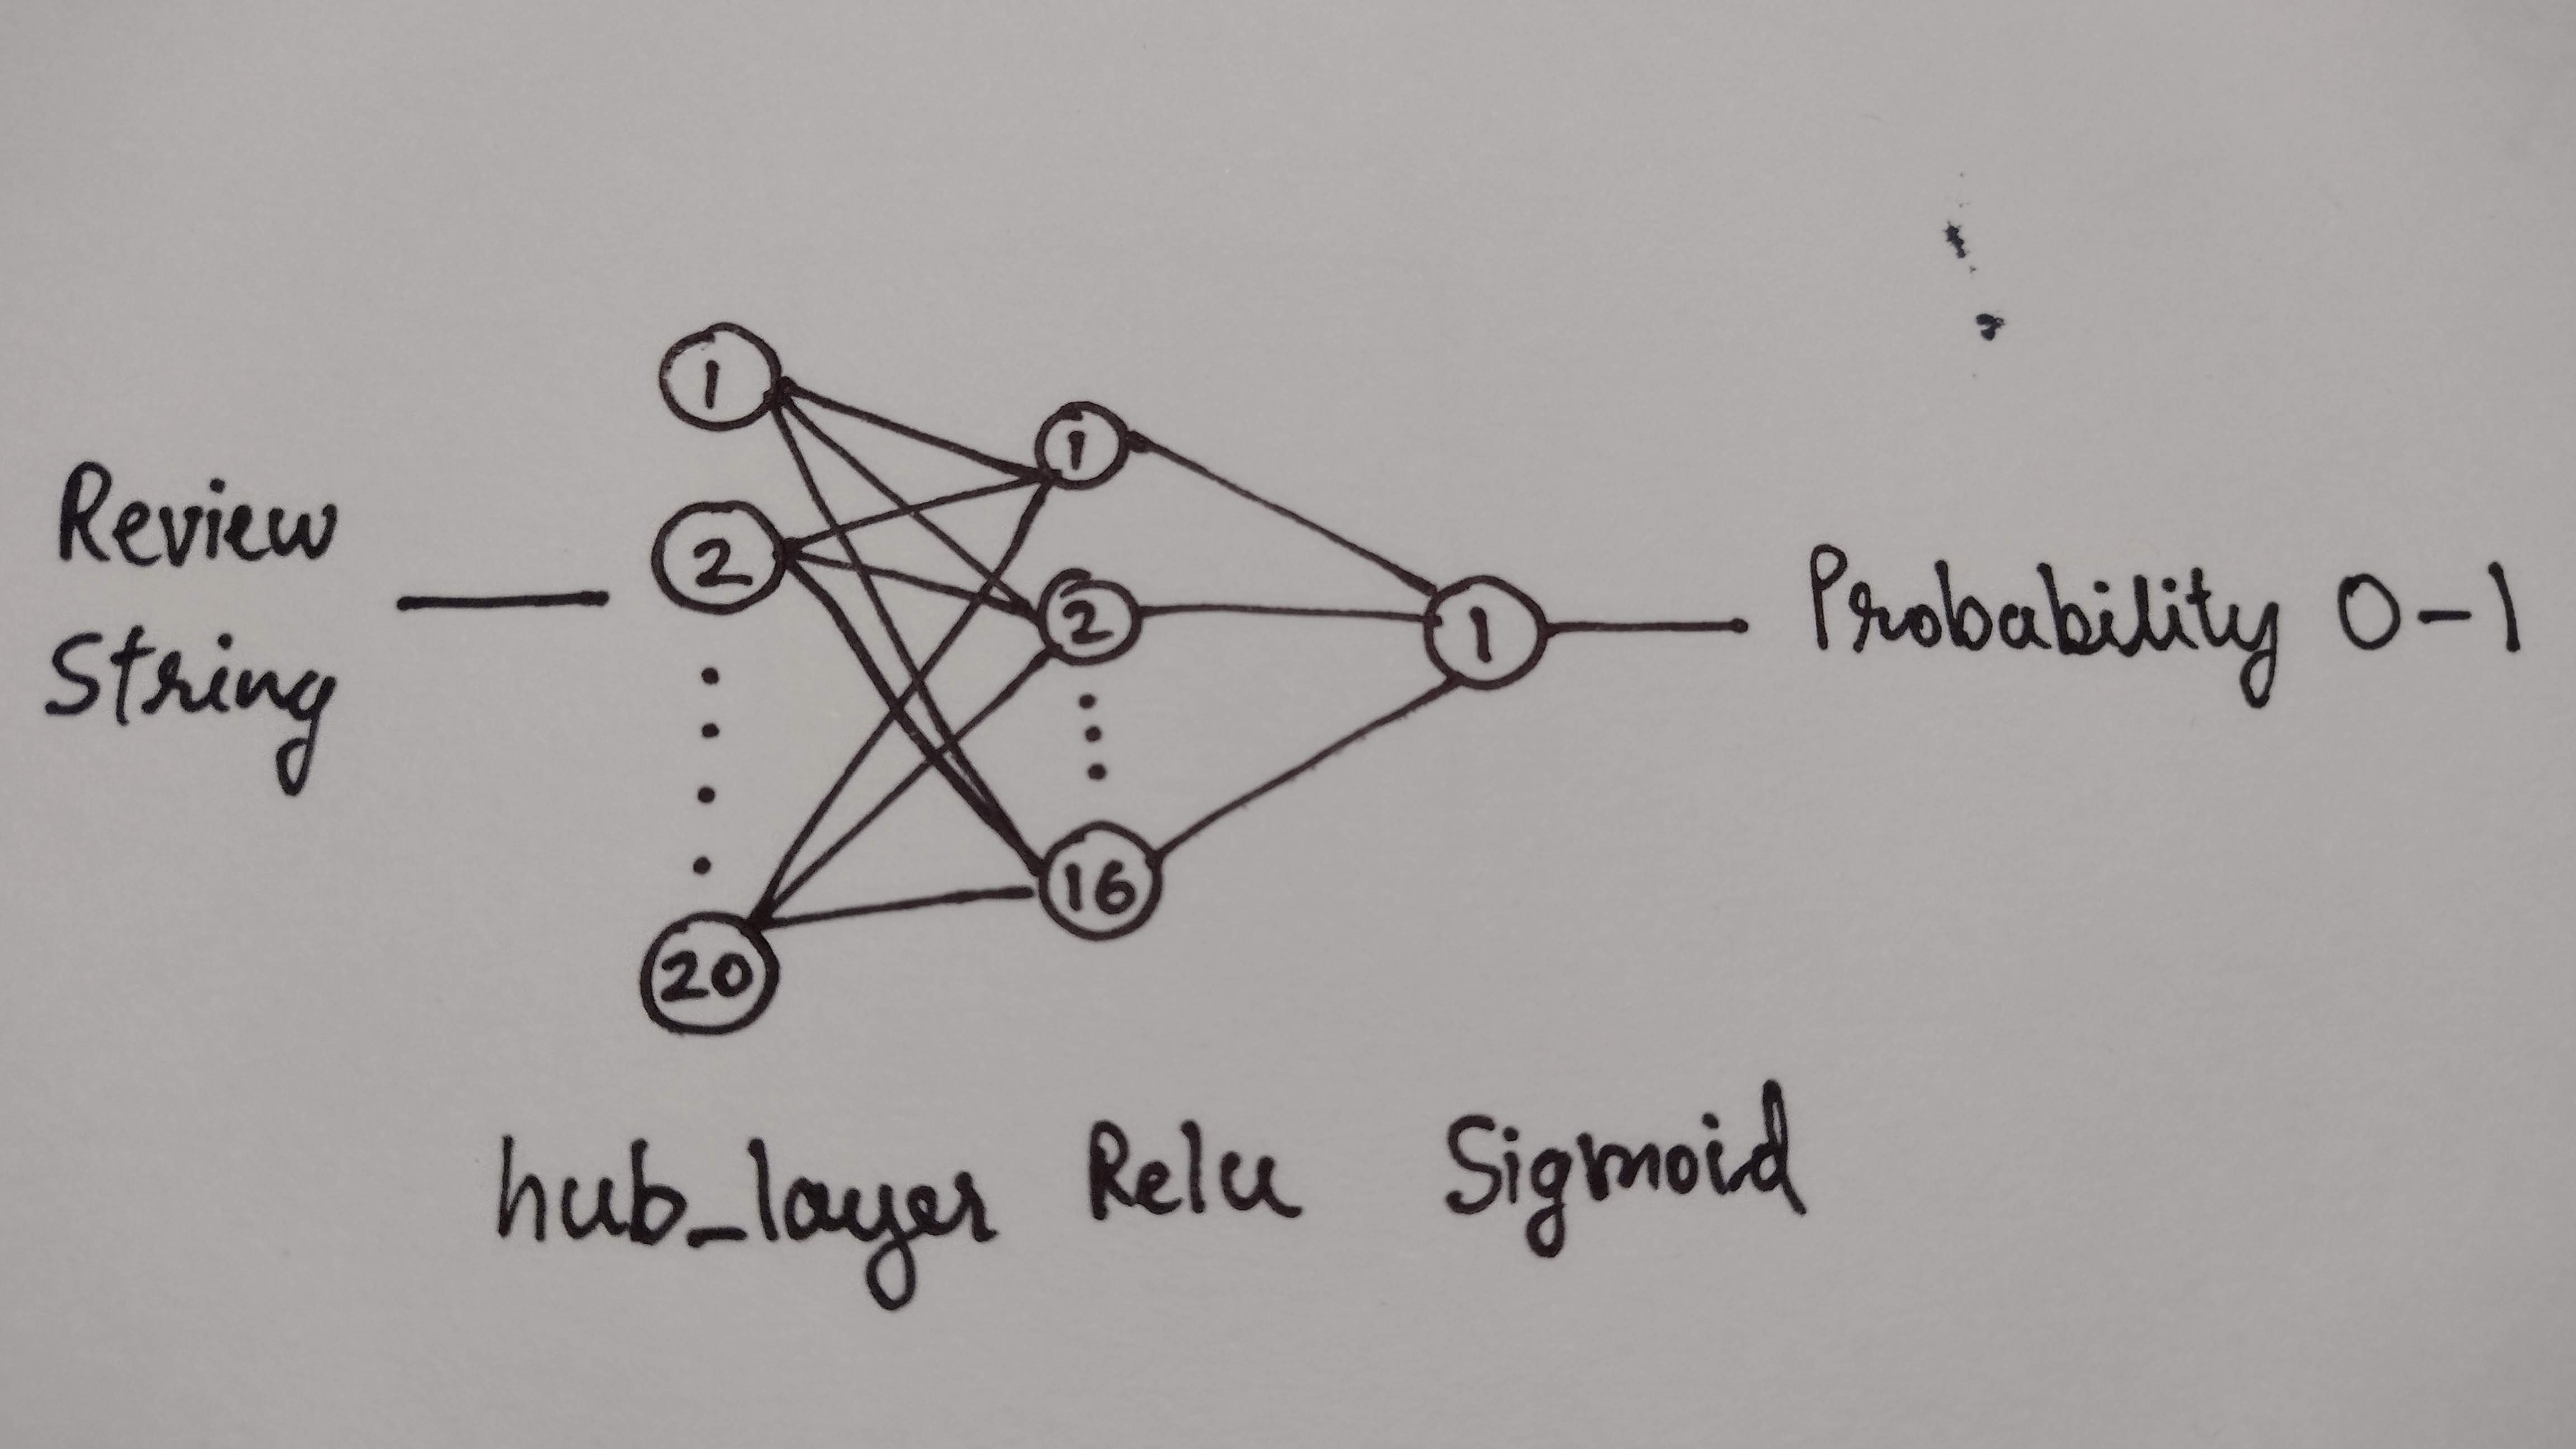 Review
String
1
2
20
1
2
16
1
Probability 0-1
hub_layer Relu Sigmoid